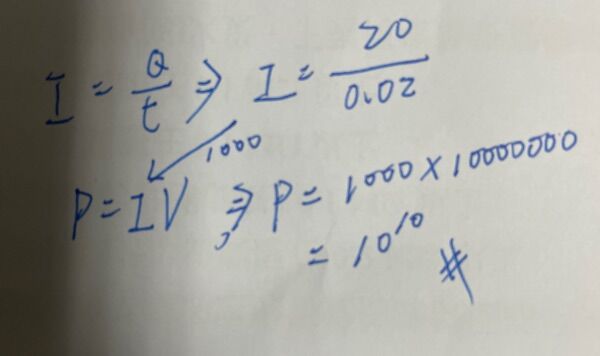 I = Q/t ⇒ I = 20/0.02
1000
P = IV, ⇒ P = 1000 × 10000000
= 10¹⁰ #